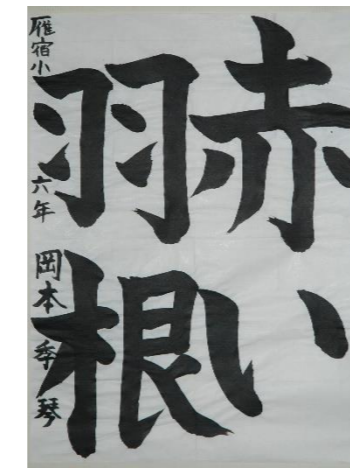 赤い
羽根
雁宿小 六年 岡本季琴